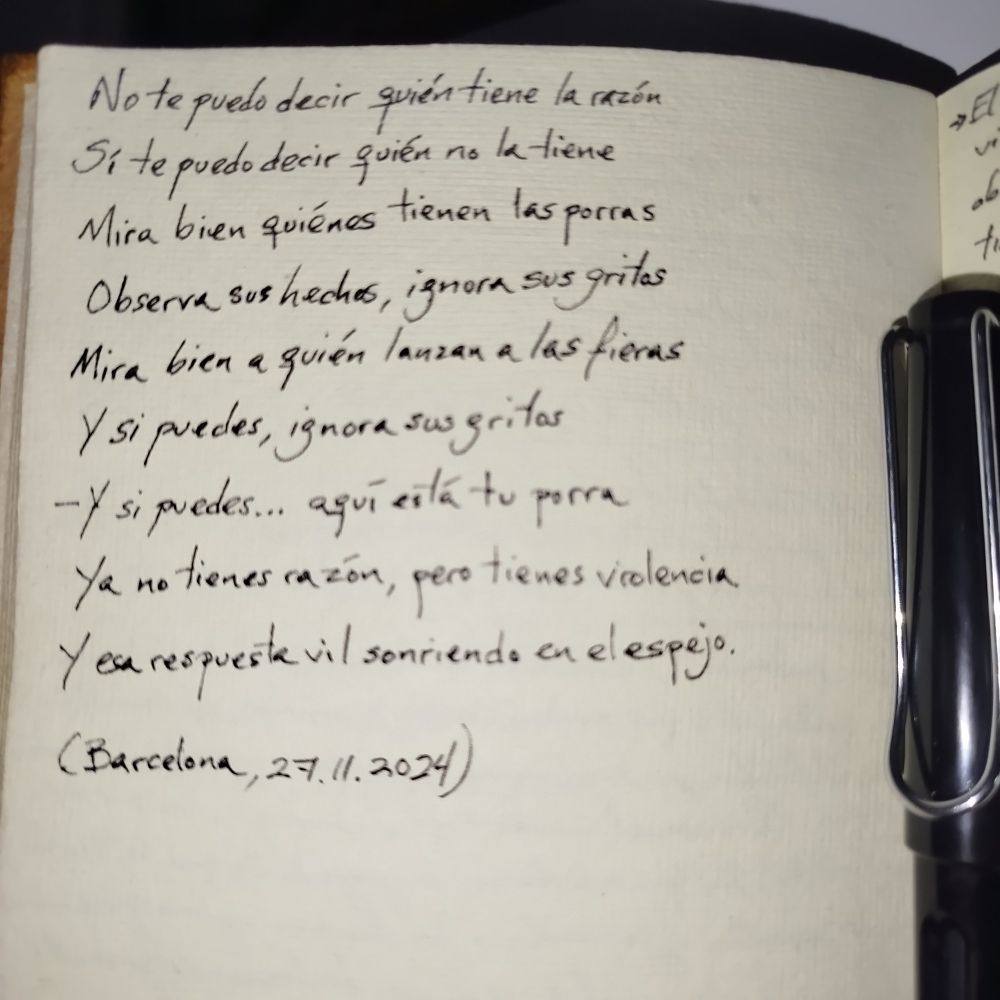 No te puedo decir quién tiene la razón
Sí te puedo decir quién no la tiene
Mira bien quiénes tienen las porras
Observa sus hechos, ignora sus gritos
Mira bien a quién lanzan a las fieras
Y si puedes, ignora sus gritos
-Y si puedes... aquí está tu porra
Ya no tienes razón, pero tienes violencia
Y esa respuesta vil sonriendo en el espejo.
(Barcelona, 27.11.2024)
→ El